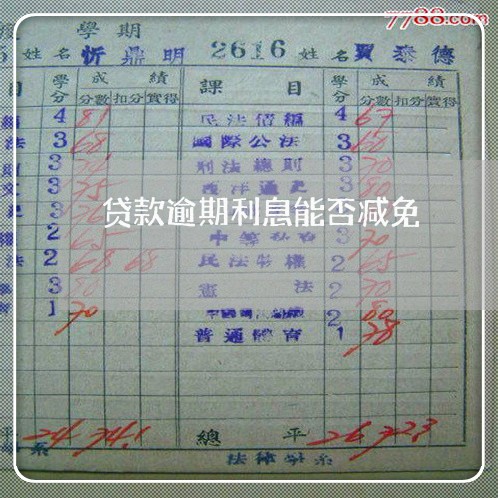 7788.com
學期
姓名 忻鼎明 2616 姓名 賈泰德
目 學分 成績 課目 學分 成績
分數 扣分 實得 分數 扣分 實得
4 81 民法債編 4 67
法 3 68 國際公法 3 60
3 刑法總則 3 70
3 75 西洋通史 3 80
贷款逾期利息能否减免
2 65 3 70
法 2 68 68 民法物權 2 65
3 80 憲法 2 70
1 70 2 80
普通體育 1 78
平 24 74.1 總平 26 72.3
系 法律學系